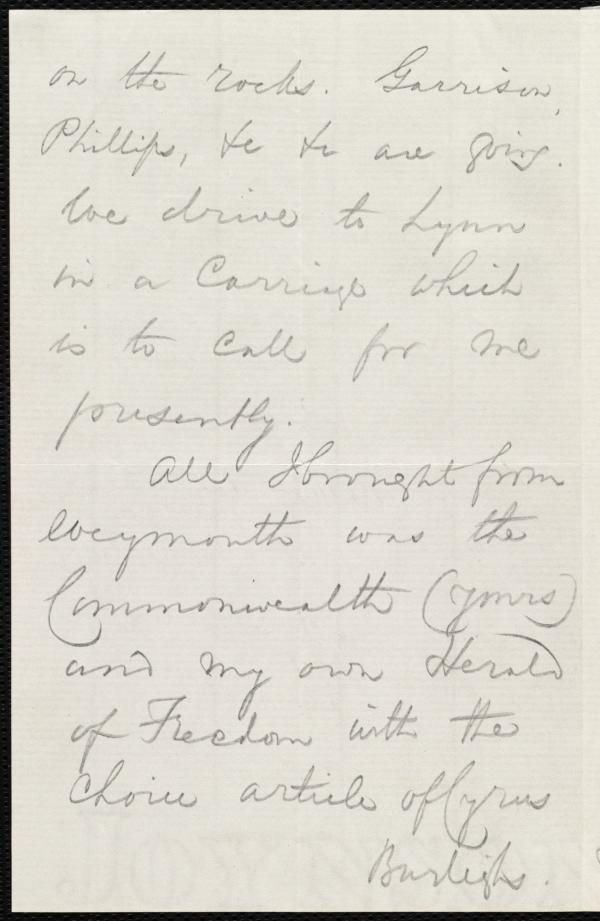 on the rocks. Garrison,
Phillips, &c &c are going.
We drive to Lynn
in a Carriage which
is to call for me
presently.
All I brought from
Weymouth was the
Commonwealth (yours)
and my own Herald
of Freedom with the
choice article of Cyrus
Burleighs.